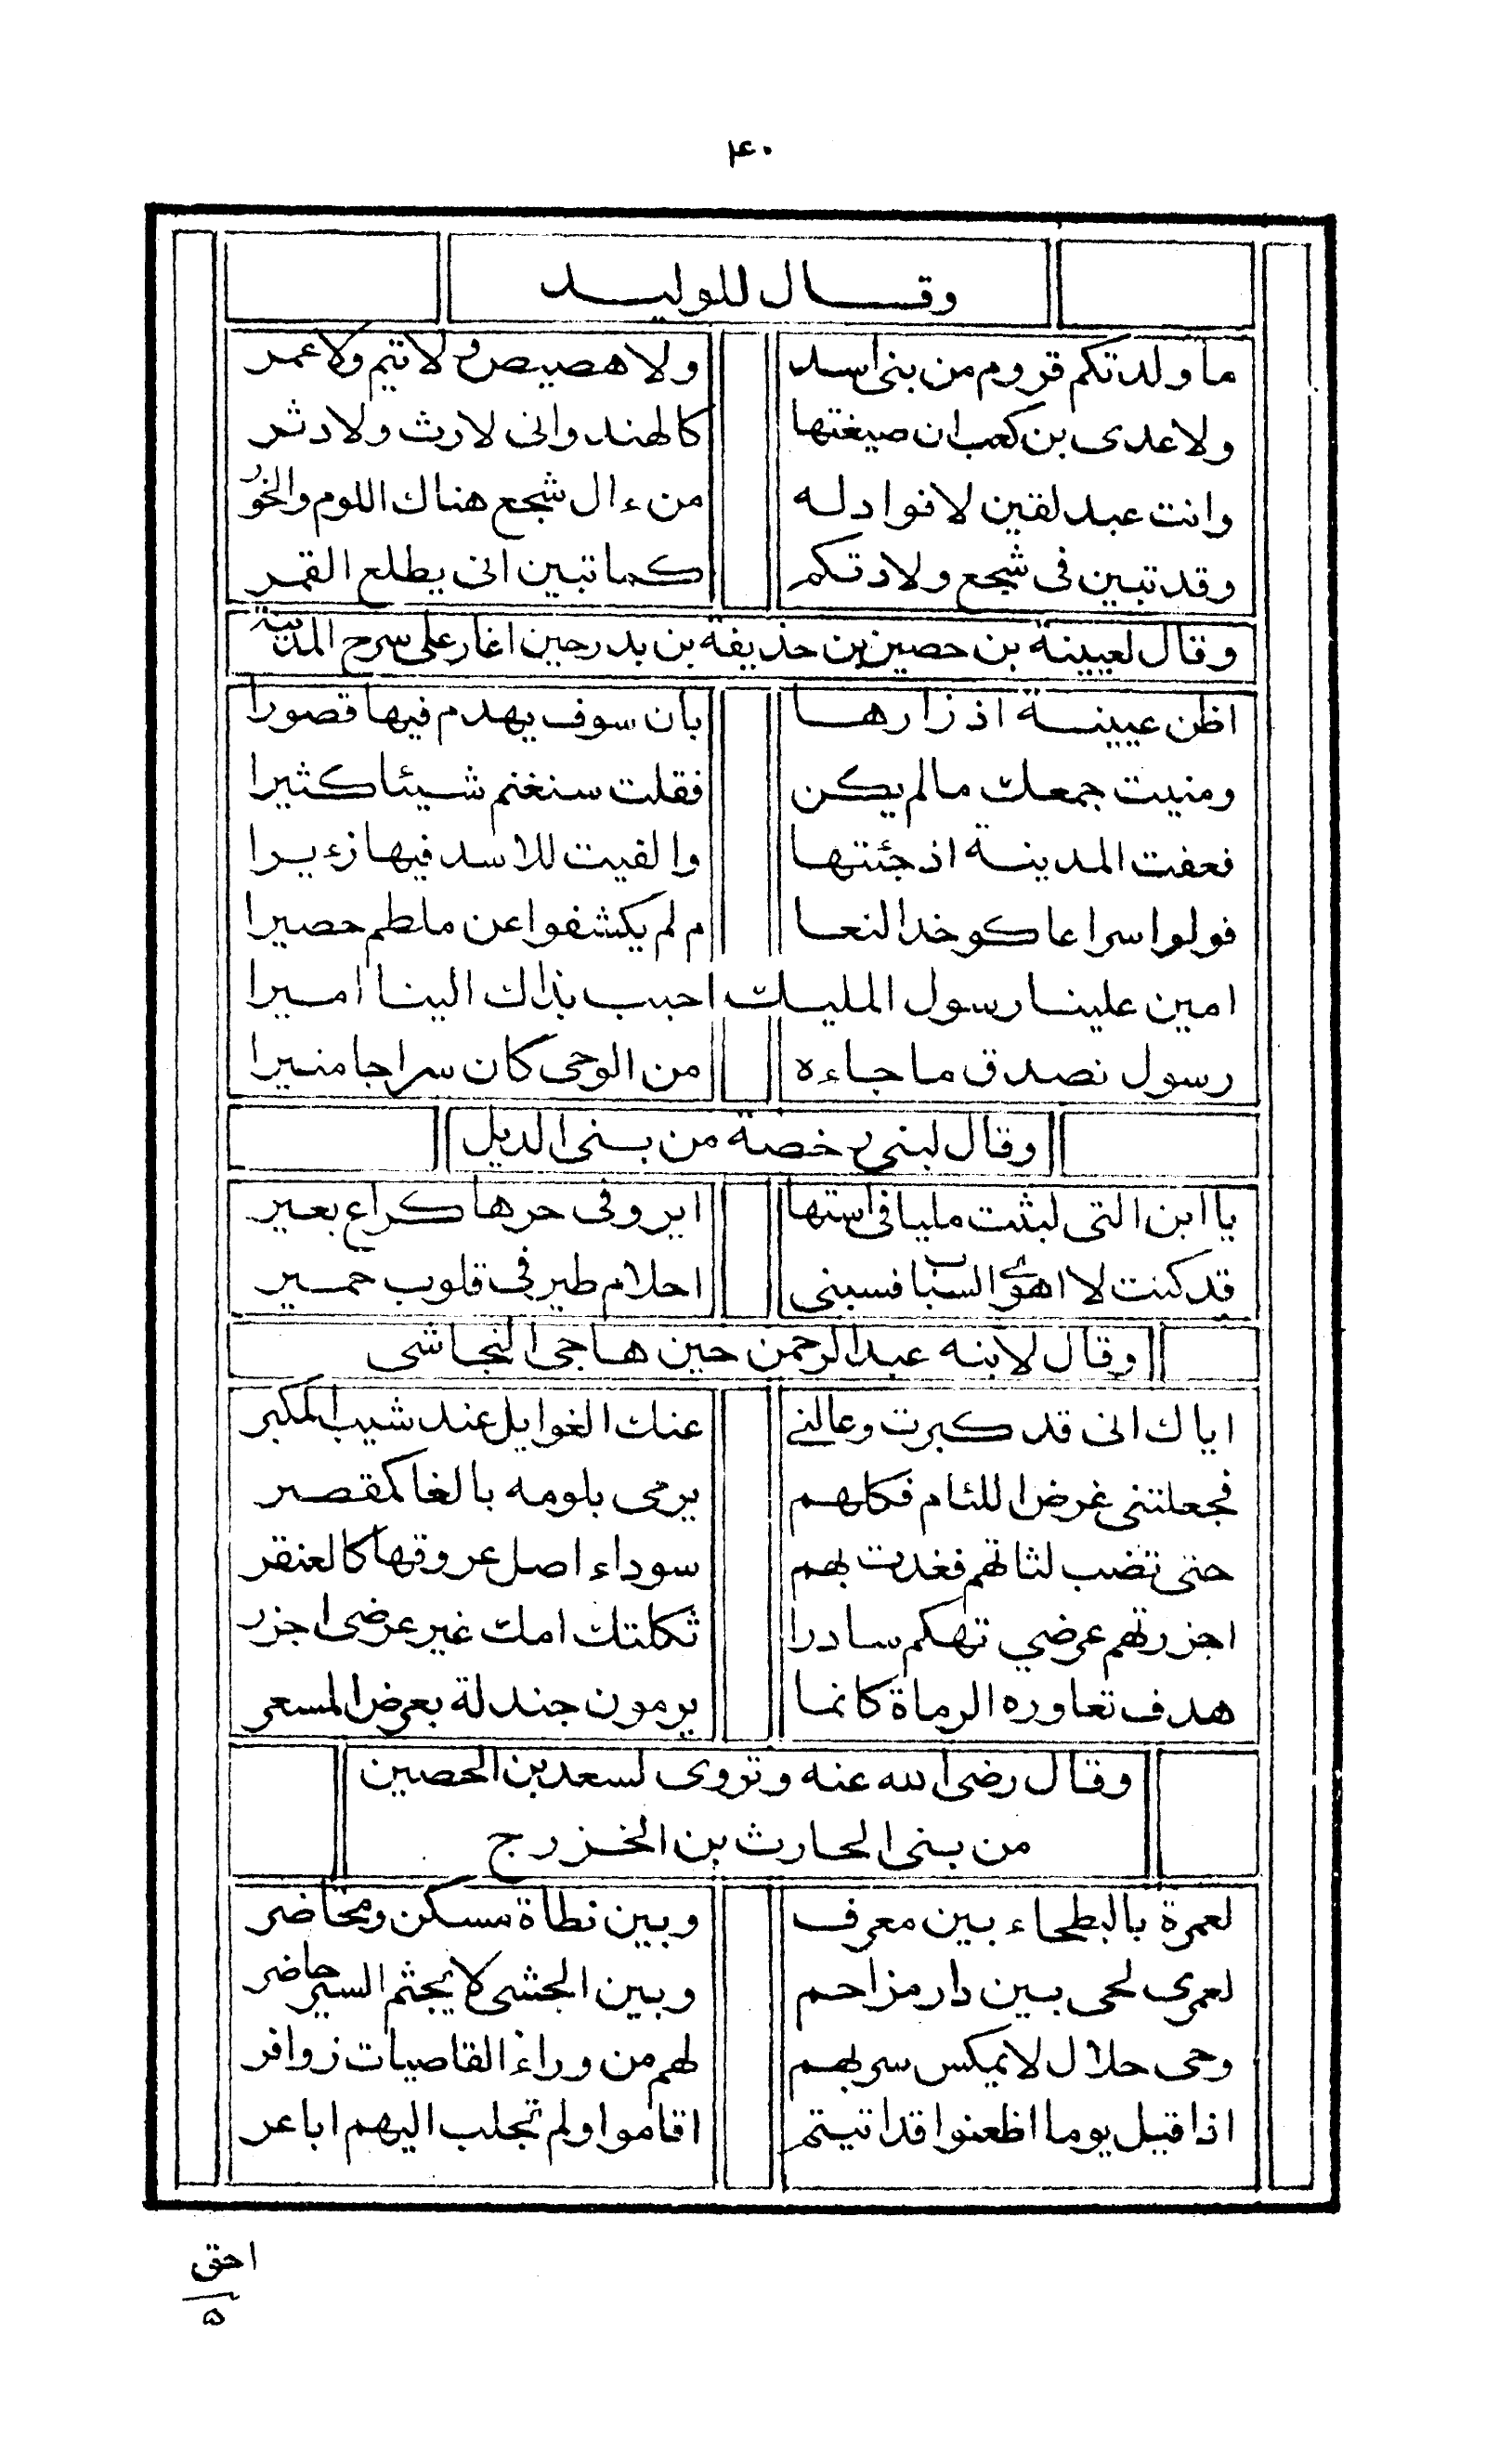 ۴۰
وقال للوليد
ما ولدتكم قروم من بنى اسد ولا هصيص ولا تيم ولا عمر
ولا عدى بن كعب ان صيغتها كالهند وانى لا رث ولا دثر
وانت عبد لقين لا فواد له من ءال شجع هناك اللوم والخور
وقد تبين فى شجع ولادتكم كما تبين انى يطلع القمر
وقال لعيينة بن حصين بن حذيفة بن بدر حين اغار على سرح المدينة
اظن عيينة اذ زارها بان سوف يهدم فيها قصورا
ومنيت جمعك مالم يكن فقلت سنغنم شيئا كثيرا
فعفت المدينة اذ جئتها والفيت للاسد فيها زءيرا
فولوا سراعا كوخد النعا م لم يكشفوا عن ملطم حصيرا
امين علينا رسول المليك احبب بذاك الينا اميرا
رسول نصدق ما جاءه من الوحى كان سراجا منيرا
وقال لبنى رخصة من بنى الديل
يا ابن التى لبثت مليا فى استها اير وفى حرها كراع بعير
قد كنت لا اهوى السباب فسبنى احلام طير فى قلوب حمير
وقال لابنه عبد الرحمن حين هاجى النجاشى
اياك انى قد كبرت وعالنے عنك الغوايل عند شيب المكبر
فجعلتنى غرض اللئام فكلهم يرمى بلومه بالغا كمقصر
حتى تضب لثاتهم فغدت بهم سوداء اصل عروقها كالعنقر
اجزرتهم عرضي تهكم سادرا ثكلتك امك غير عرضى اجزر
هدف تعاوره الرماة كانما يرمون جندلة بعرض المسعر
وقال رضى الله عنه وتروى لسعد بن الحصين
من بنى الحارث بن الخزرج
لعمرة بالبطحاء بين معرف وبين نطاة مسكن ومحاضر
لعمرى لحى بين دار مزاحم وبين الجثى لا يجثم السير حاضر
وحى حلال لا يمكس سربهم لهم من وراء القاصيات زوافر
اذا قيل يوما اظعنوا قد اتيتم اقاموا ولم تجلب اليهم اباعر
احق
۵